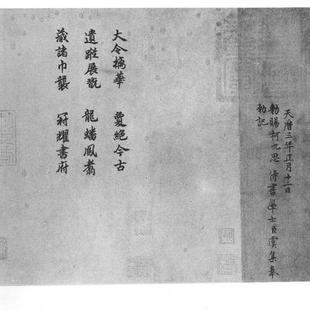 天曆三年正月十二日
勑賜柯九思 侍書學士臣虞集奉
勑記
大令摛華 夐絕今古
遺蹤展翫 龍蟠鳳翥
藏諸巾襲 冠耀書府